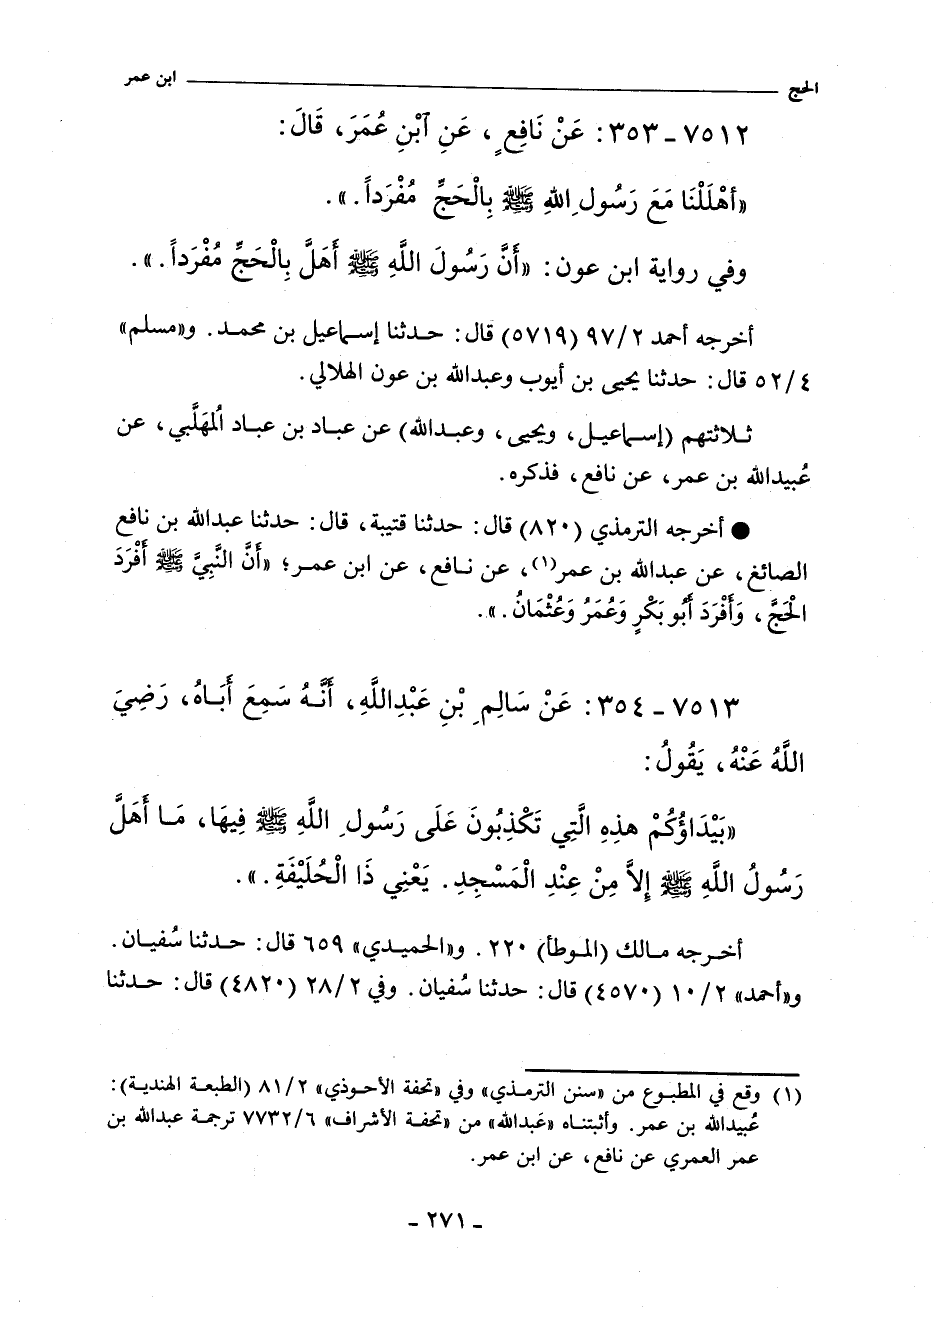 الحج ــــــــــــــــــــــــــــــــــــــــــــــــ ابن عمر
٧٥١٢ ـ ٣٥٣: عَنْ نَافِعٍ، عَنِ ٱبْنِ عُمَرَ، قَالَ:
«أَهْلَلْنَا مَعَ رَسُولِ اللهِ ﷺ بِالْحَجِّ مُفْرَداً.».
وفي رواية ابن عون: «أَنَّ رَسُولَ اللَّهِ ﷺ أَهَلَّ بِالْحَجِّ مُفْرَداً.».
أخرجه أحمد ٩٧/٢ (٥٧١٩) قال: حدثنا إسماعيل بن محمد. و«مسلم»
٥٢/٤ قال: حدثنا يحيى بن أيوب وعبدالله بن عون الهلالي.
ثلاثتهم (إسماعيل، ويحيى، وعبدالله) عن عباد بن عباد المُهَلَّبي، عن
عُبيدالله بن عمر، عن نافع، فذكره.
● أخرجه الترمذي (٨٢٠) قال: حدثنا قتيبة، قال: حدثنا عبدالله بن نافع
الصائغ، عن عبدالله بن عمر(١)، عن نافع، عن ابن عمر؛ «أَنَّ النَّبِيَّ ﷺ أَفْرَدَ
الْحَجَّ، وَأَفْرَدَ أَبُو بَكْرٍ وَعُمَرُ وَعُثْمَانُ.».
٧٥١٣ ـ ٣٥٤: عَنْ سَالِمِ بْنِ عَبْدِاللَّهِ، أَنَّهُ سَمِعَ أَبَاهُ، رَضِيَ
اللَّهُ عَنْهُ، يَقُولُ:
«بَيْدَاؤُكُمْ هذِهِ الَّتِي تَكْذِبُونَ عَلَى رَسُولِ اللَّهِ ﷺ فِيهَا، مَا أَهَلَّ
رَسُولُ اللَّهِ ﷺ إِلاَّ مِنْ عِنْدِ الْمَسْجِدِ. يَعْنِي ذَا الْحُلَيْفَةِ.».
أخرجه مالك (الموطأ) ٢٢٠. و«الحميدي» ٦٥٩ قال: حدثنا سُفيان.
و«أحمد» ١٠/٢ (٤٥٧٠) قال: حدثنا سُفيان. وفي ٢٨/٢ (٤٨٢٠) قال: حدثنا
(١) وقع في المطبوع من «سنن الترمذي» وفي «تحفة الأحوذي» ٨١/٢ (الطبعة الهندية):
عُبيدالله بن عمر. وأثبتناه «عَبدالله» من «تحفة الأشراف» ٧٧٣٢/٦ ترجمة عبدالله بن
عمر العمري عن نافع، عن ابن عمر.
ـ ٢٧١ ـ